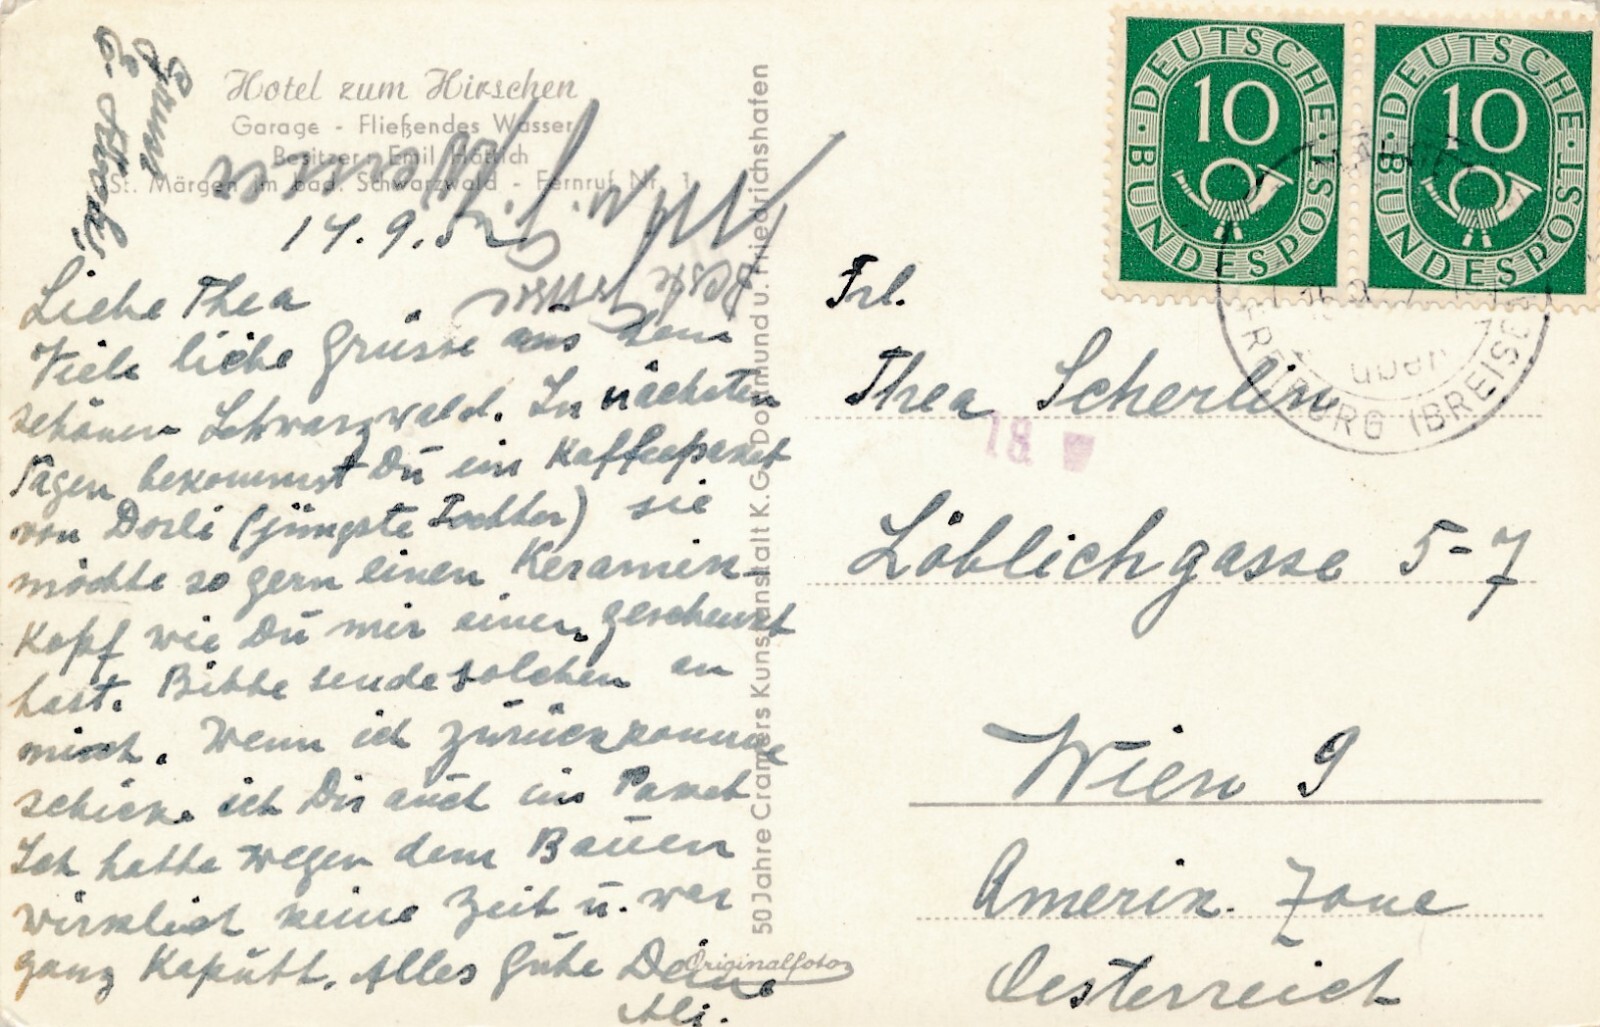 Hotel zum Hirschen
Garage - Fließendes Wasser
Besitzer: Emil Hättich
St. Märgen im bad. Schwarzwald - Fernruf Nr. 1
14.9.52
Liebe Thea
Viele liebe Grüsse aus dem
schönen Schwarzwald. In nächsten
Tagen bekommst Du ein Kaffeepaket
von Dorli (jüngste Tochter) sie
möchte so gern einen Keramik-
Kopf wie Du mir einen geschenkt
hast. Bitte sende solchen an
mich. Wenn ich zurückkomme
schicke ich Dir auch ein Paket
Ich hatte wegen dem Bauen
wirklich keine Zeit u. war
ganz kaputt. Alles Gute Deine
Ali.
Beste Grüsse
Gruss
50 Jahre Cramers Kunstanstalt K.G. Dortmund u. Friedrichshafen
Originalfoto
DEUTSCHE BUNDESPOST
10
DEUTSCHE BUNDESPOST
10
FREIBURG (BREISGAU)
Frl.
Thea Scherlin
18
Löblichgasse 5-7
Wien 9
Amerik. Zone
Oesterreich